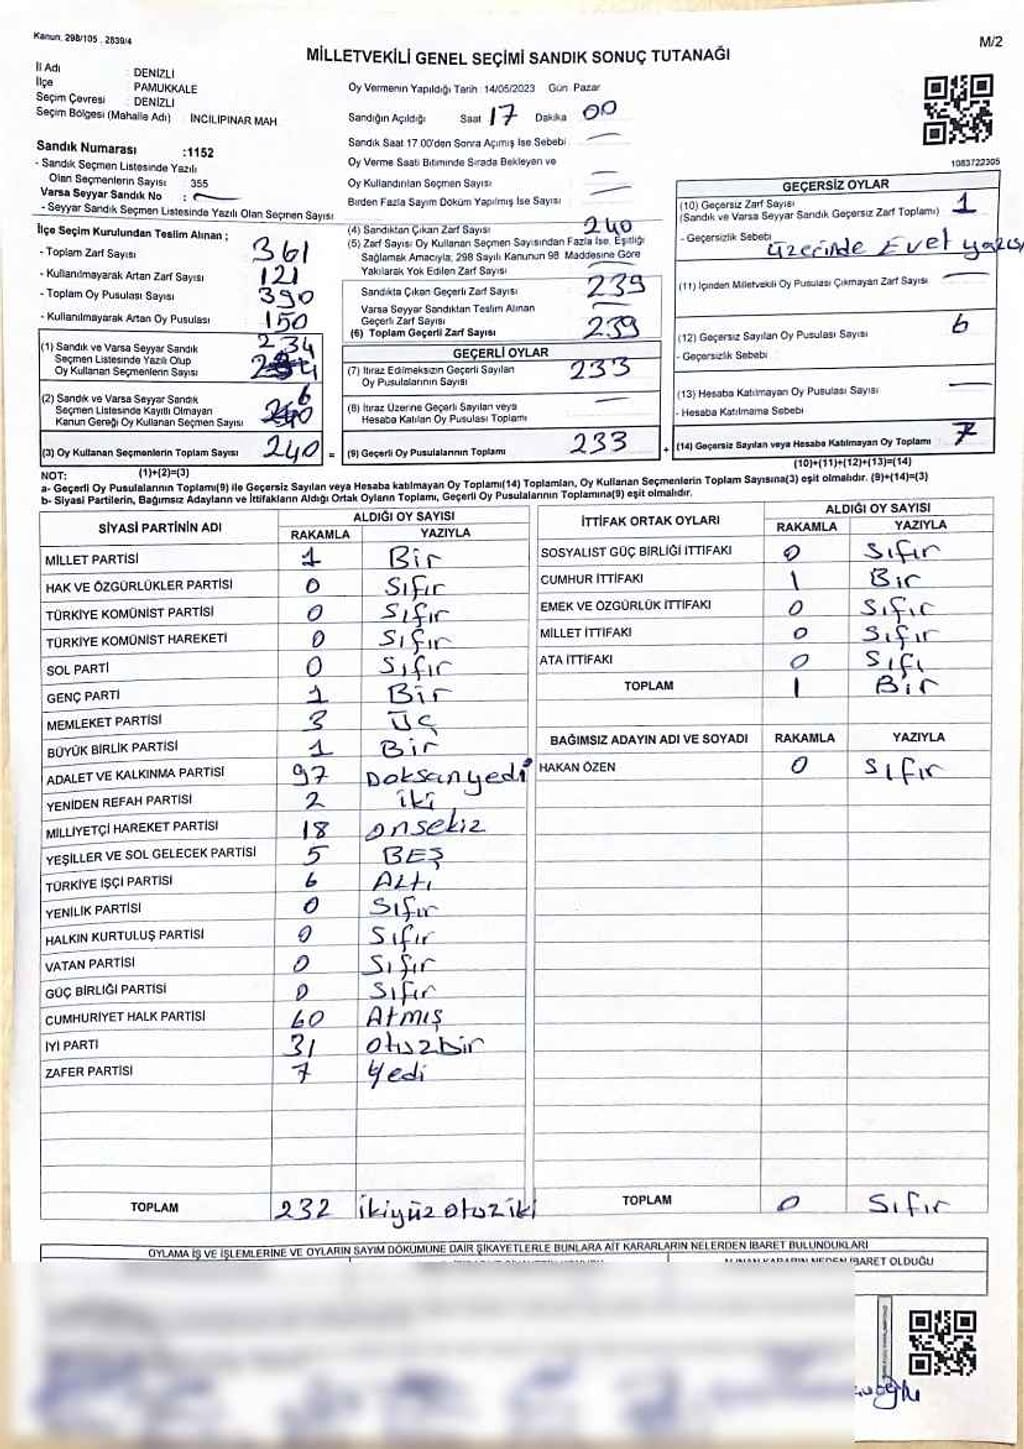 Kanun. 298/105 . 2839/4
M/2
MİLLETVEKİLİ GENEL SEÇİMİ SANDIK SONUÇ TUTANAĞI
İl Adı : DENİZLİ
İlçe PAMUKKALE
Seçim Çevresi : DENİZLİ
Seçim Bölgesi (Mahalle Adı) : İNCİLİPINAR MAH
Sandık Numarası :1152
- Sandık Seçmen Listesinde Yazılı
Olan Seçmenlerin Sayısı 355
Varsa Seyyar Sandık No : —
- Seyyar Sandık Seçmen Listesinde Yazılı Olan Seçmen Sayısı
Oy Vermenin Yapıldığı Tarih 14/05/2023 Gün Pazar
Sandığın Açıldığı Saat 17 Dakika 00
Sandık Saat 17.00'den Sonra Açılmış İse Sebebi —
Oy Verme Saati Bitiminde Sırada Bekleyen ve
Oy Kullandırılan Seçmen Sayısı —
Birden Fazla Sayım Döküm Yapılmış İse Sayısı —
1083722305
İlçe Seçim Kurulundan Teslim Alınan ;
- Toplam Zarf Sayısı 361
- Kullanılmayarak Artan Zarf Sayısı 121
- Toplam Oy Pusulası Sayısı 390
- Kullanılmayarak Artan Oy Pusulası 150
(1) Sandık ve Varsa Seyyar Sandık 234
Seçmen Listesinde Yazılı Olup
Oy Kullanan Seçmenlerin Sayısı
(2) Sandık ve Varsa Seyyar Sandık 6
Seçmen Listesinde Kayıtlı Olmayan
Kanun Gereği Oy Kullanan Seçmen Sayısı
(3) Oy Kullanan Seçmenlerin Toplam Sayısı 240 =
(4) Sandıktan Çıkan Zarf Sayısı 240
(5) Zarf Sayısı Oy Kullanan Seçmen Sayısından Fazla İse, Eşitliği
Sağlamak Amacıyla, 298 Sayılı Kanunun 98. Maddesine Göre
Yakılarak Yok Edilen Zarf Sayısı —
Sandıkta Çıkan Geçerli Zarf Sayısı 239
Varsa Seyyar Sandıktan Teslim Alınan
Geçerli Zarf Sayısı —
(6) Toplam Geçerli Zarf Sayısı 239
GEÇERLİ OYLAR
(7) İtiraz Edilmeksizin Geçerli Sayılan 233
Oy Pusulalarının Sayısı
(8) İtiraz Üzerine Geçerli Sayılan veya —
Hesaba Katılan Oy Pusulası Toplamı
(9) Geçerli Oy Pusulalarının Toplamı 233 +
GEÇERSİZ OYLAR
(10) Geçersiz Zarf Sayısı 1
(Sandık ve Varsa Seyyar Sandık Geçersiz Zarf Toplamı)
- Geçersizlik Sebebi üzerinde Evet yazısı
(11) İçinden Milletvekili Oy Pusulası Çıkmayan Zarf Sayısı —
(12) Geçersiz Sayılan Oy Pusulası Sayısı 6
- Geçersizlik Sebebi
(13) Hesaba Katılmayan Oy Pusulası Sayısı —
- Hesaba Katılmama Sebebi
(14) Geçersiz Sayılan veya Hesaba Katılmayan Oy Toplamı 7
NOT: (1)+(2)=(3)
(10)+(11)+(12)+(13)=(14)
a- Geçerli Oy Pusulalarının Toplamı(9) ile Geçersiz Sayılan veya Hesaba katılmayan Oy Toplamı(14) Toplamları, Oy Kullanan Seçmenlerin Toplam Sayısına(3) eşit olmalıdır. (9)+(14)=(3)
b- Siyasi Partilerin, Bağımsız Adayların ve İttifakların Aldığı Ortak Oyların Toplamı, Geçerli Oy Pusulalarının Toplamına(9) eşit olmalıdır.
SİYASİ PARTİNİN ADI ALDIĞI OY SAYISI
RAKAMLA YAZIYLA
MİLLET PARTİSİ 1 Bir
HAK VE ÖZGÜRLÜKLER PARTİSİ 0 Sıfır
TÜRKİYE KOMÜNİST PARTİSİ 0 Sıfır
TÜRKİYE KOMÜNİST HAREKETİ 0 Sıfır
SOL PARTİ 0 Sıfır
GENÇ PARTİ 1 Bir
MEMLEKET PARTİSİ 3 Üç
BÜYÜK BİRLİK PARTİSİ 1 Bir
ADALET VE KALKINMA PARTİSİ 97 Doksanyedi
YENİDEN REFAH PARTİSİ 2 iki
MİLLİYETÇİ HAREKET PARTİSİ 18 onsekiz
YEŞİLLER VE SOL GELECEK PARTİSİ 5 BEŞ
TÜRKİYE İŞÇİ PARTİSİ 6 Altı
YENİLİK PARTİSİ 0 Sıfır
HALKIN KURTULUŞ PARTİSİ 0 Sıfır
VATAN PARTİSİ 0 Sıfır
GÜÇ BİRLİĞİ PARTİSİ 0 Sıfır
CUMHURİYET HALK PARTİSİ 60 Atmış
İYİ PARTİ 31 otuzbir
ZAFER PARTİSİ 7 Yedi
TOPLAM 232 ikiyüzotuziki
İTTİFAK ORTAK OYLARI ALDIĞI OY SAYISI
RAKAMLA YAZIYLA
SOSYALİST GÜÇ BİRLİĞİ İTTİFAKI 0 Sıfır
CUMHUR İTTİFAKI 1 Bir
EMEK VE ÖZGÜRLÜK İTTİFAKI 0 Sıfır
MİLLET İTTİFAKI 0 Sıfır
ATA İTTİFAKI 0 Sıfı
TOPLAM 1 Bir
BAĞIMSIZ ADAYIN ADI VE SOYADI RAKAMLA YAZIYLA
HAKAN ÖZEN 0 Sıfır
TOPLAM 0 Sıfır
OYLAMA İŞ VE İŞLEMLERİNE VE OYLARIN SAYIM DÖKÜMÜNE DAİR ŞİKAYETLERLE BUNLARA AİT KARARLARIN NELERDEN İBARET BULUNDUKLARI
ALINAN KARARIN NEDEN İBARET OLDUĞU